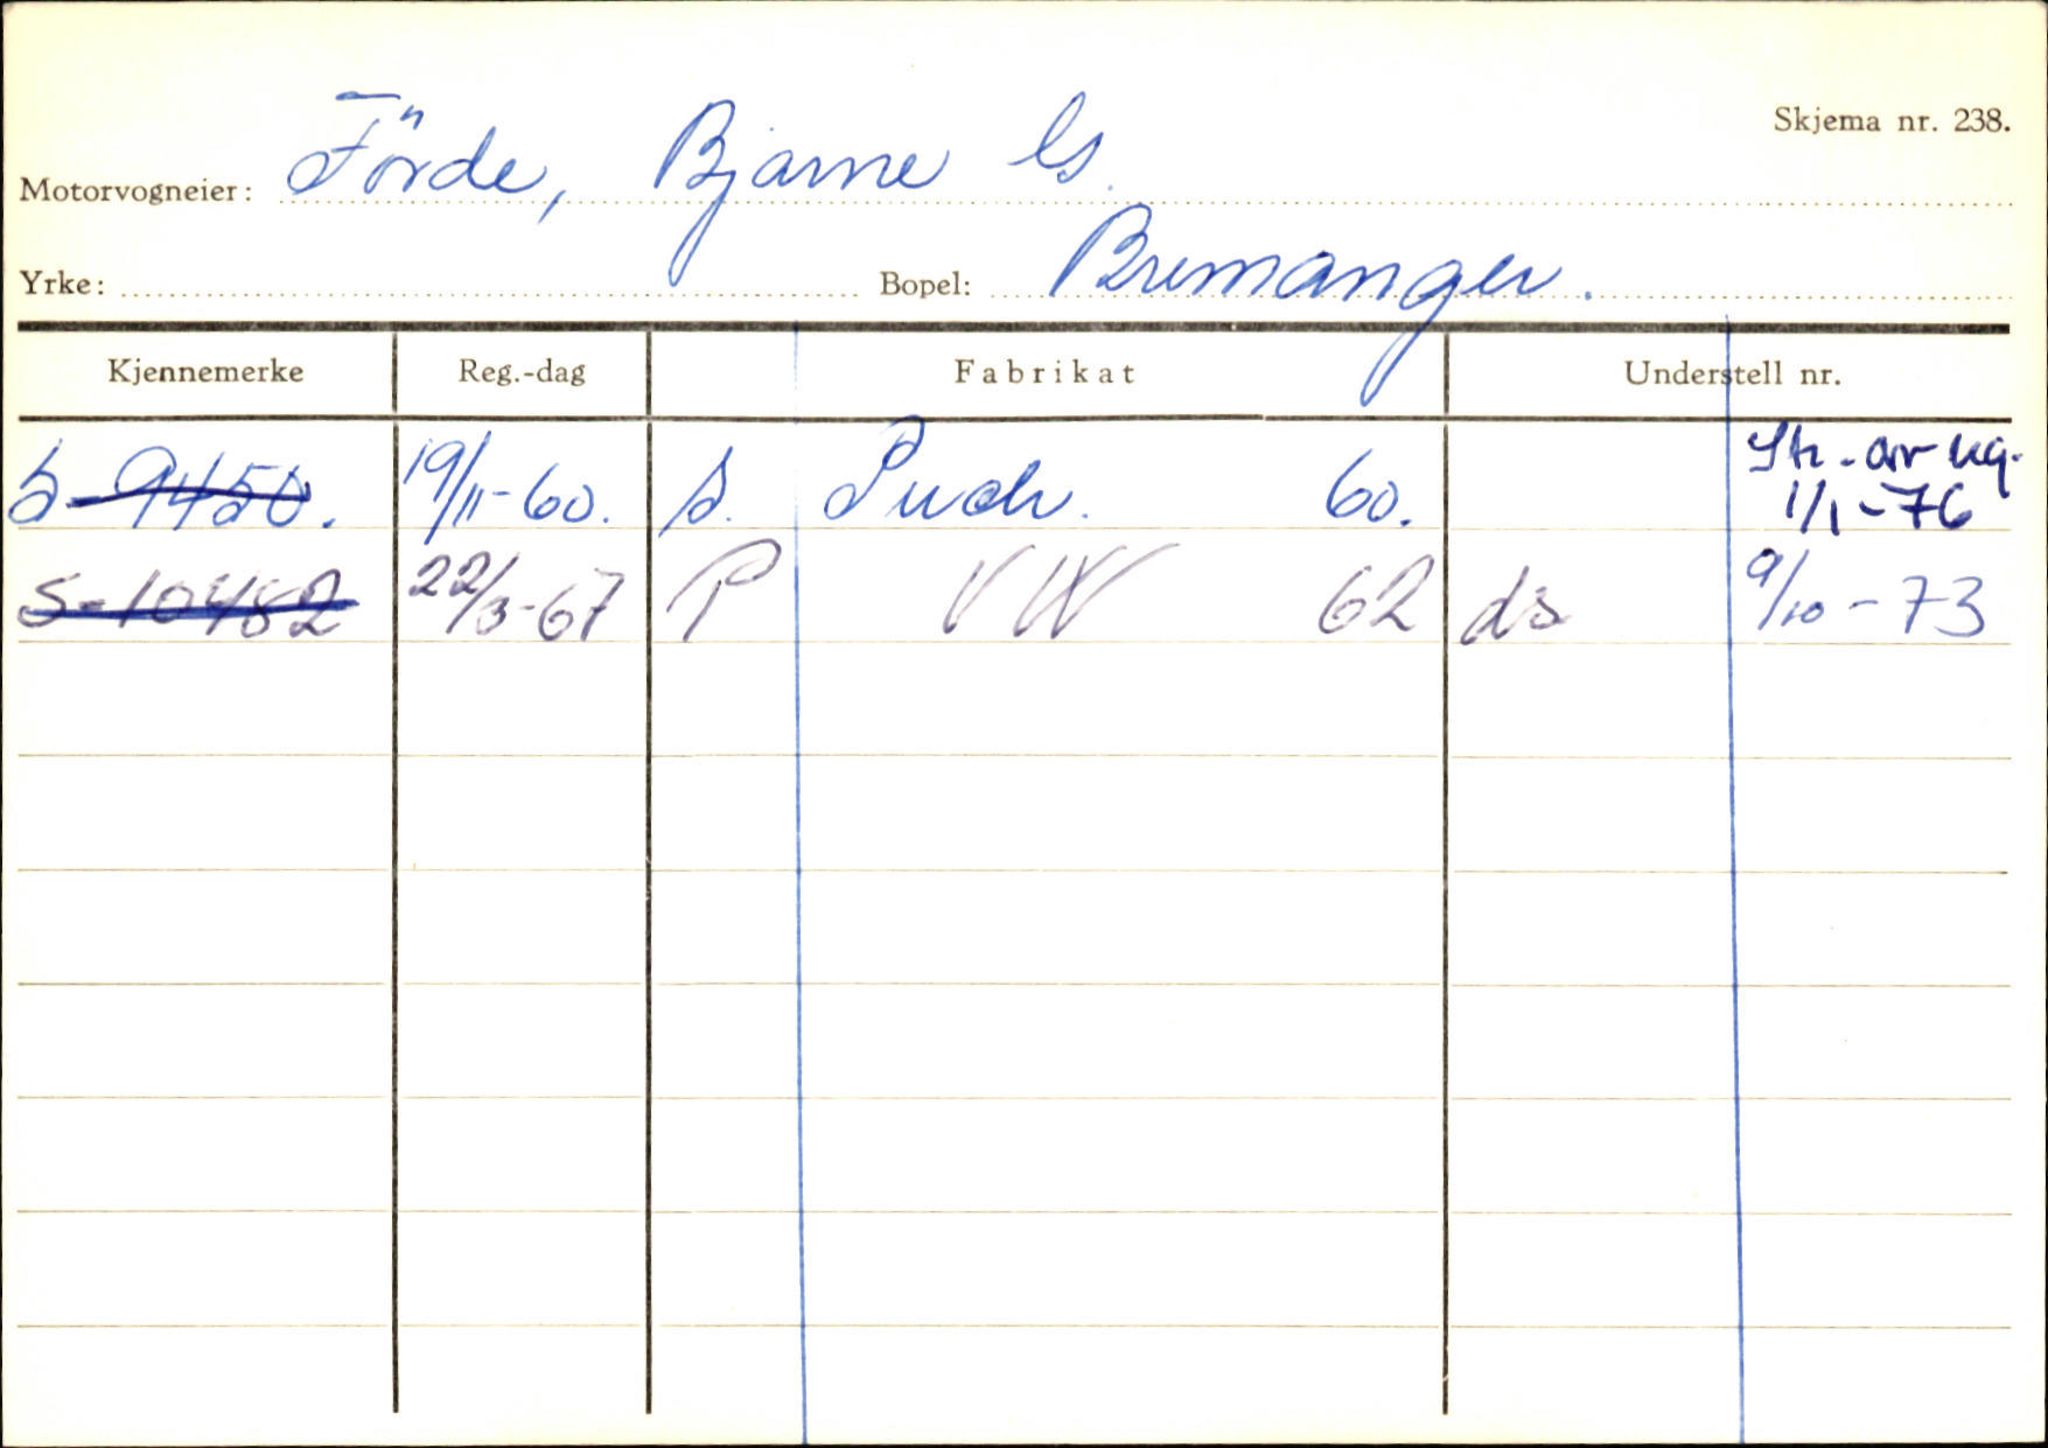 Skjema nr. 238.
Motorvogneier: Förde, Bjarne
Yrke: Bopel: Bremanger.
Kjennemerke Reg.-dag Fabrikat Understell nr.
S-9450. 19/11-60. s. Puch. 60. Str. av reg. 1/1-76
S-10482 22/3-67 P VW 62 ds 9/10-73